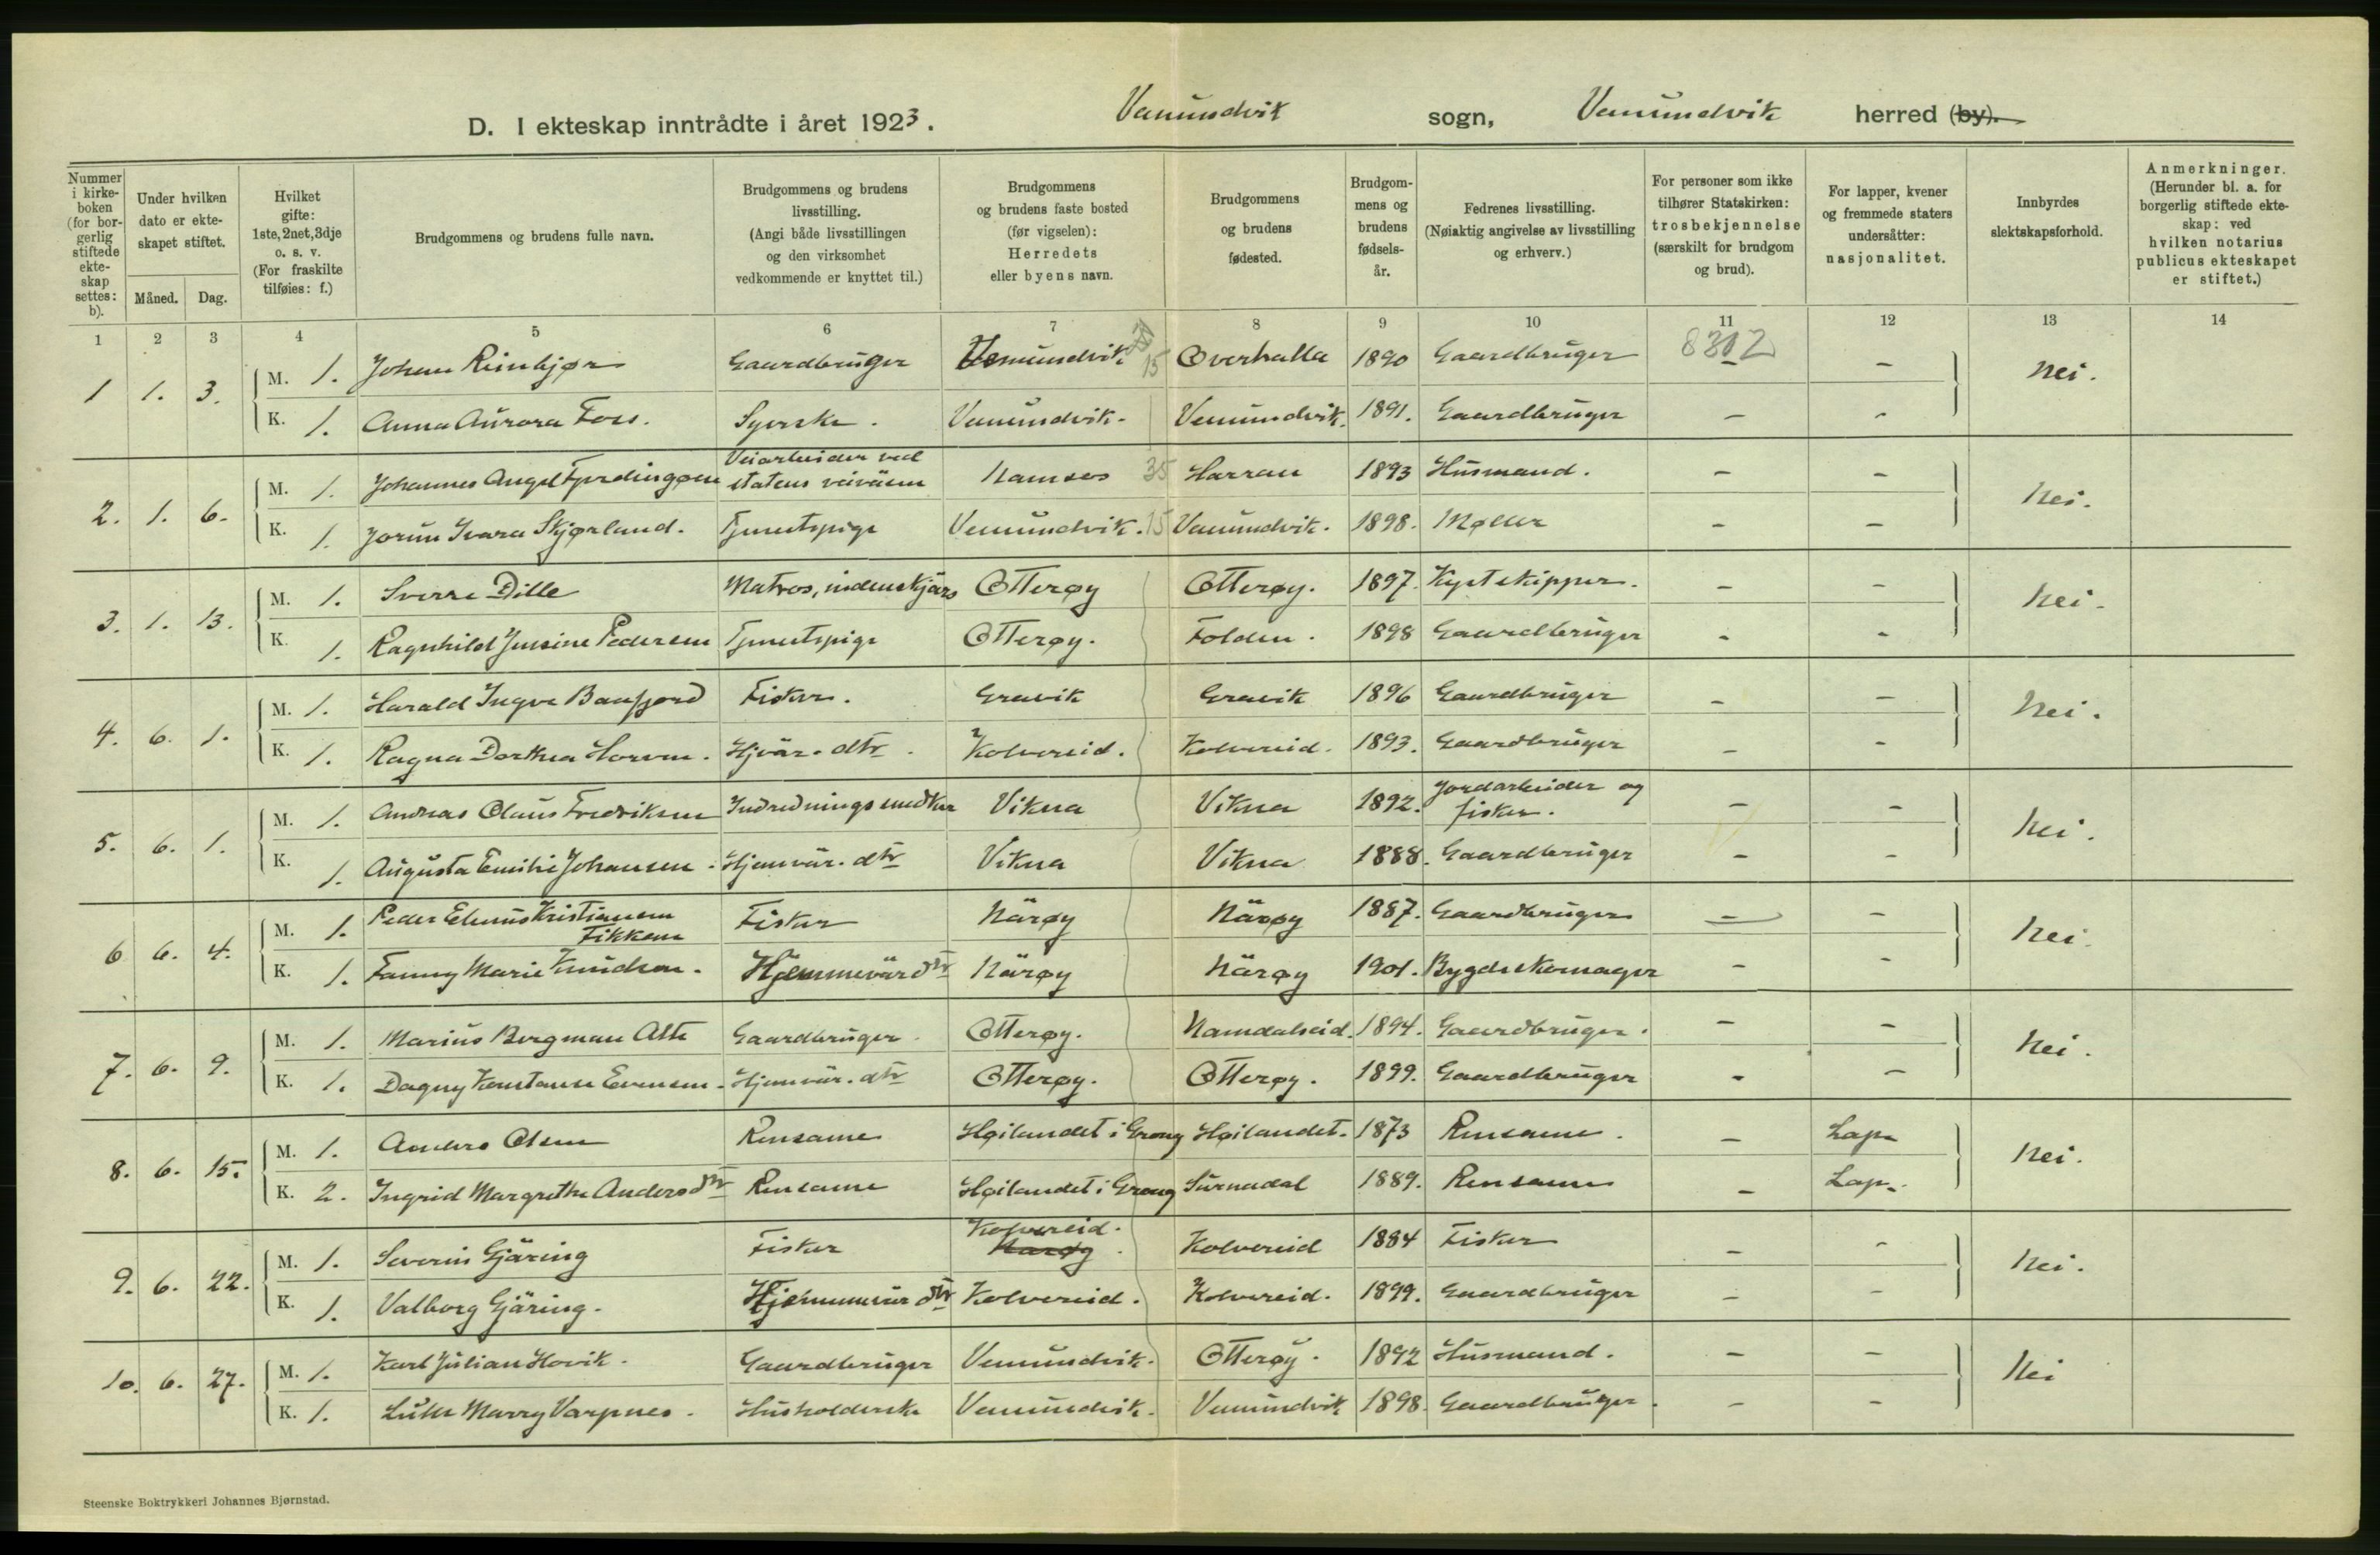 D. I ekteskap inntrådte i året 1923. Vemundvik sogn, Vemundvik herred (by).
Nummer i kirkeboken (for borgerlig stiftede ekteskap settes: b). Under hvilken dato er ekteskapet stiftet. Måned. Dag. Hvilket gifte: 1ste, 2net, 3dje o. s. v. (For fraskilte tilføies: f.) Brudgommens og brudens fulle navn. Brudgommens og brudens livsstilling. (Angi både livsstillingen og den virksomhet vedkommende er knyttet til.) Brudgommens og brudens faste bosted (før vigselen): Herredets eller byens navn. Brudgommens og brudens fødested. Brudgommens og brudens fødselsår. Fedrenes livsstilling. (Nøiaktig angivelse av livsstilling og erhverv.) For personer som ikke tilhører Statskirken: trosbekjennelse (særskilt for brudgom og brud). For lapper, kvener og fremmede staters undersåtter: nasjonalitet. Innbyrdes slektskapsforhold. Anmerkninger. (Herunder bl. a. for borgerlig stiftede ekteskap: ved hvilken notarius publicus ekteskapet er stiftet.)
1 2 3 4 5 6 7 8 9 10 11 12 13 14
8302
1 1. 3. M. 1. Johan Reinbjør Gaardbruger Vemundvik 15 Overhalla 1890 Gaardbruger - - Nei.
K. 1. Anna Aurora Foss. Syerske. Vemundvik. Vemundvik. 1891. Gaardbruger - -
2. 1. 6. M. 1. Johannes Angel Fjerdingøen Veiarbeider ved statens veivæsen Namsos 35 Harran 1893 Husmand. - - Nei.
K. 1. Jorun Ivara Skjørland. Tjenestpige Vemundvik. 15 Vemundvik. 1898. Møller - -
3. 1. 13. M. 1. Sverre Dille Matros, indenskjærs Otterøy Otterøy. 1897. Kystskipper. - - Nei.
K. 1. Ragnhild Jensine Pedersen Tjenestpige Otterøy. Folden. 1898 Gaardbruger - -
4. 6. 1. M. 1. Harald Ingve Baufjord Fisker. Gravik Gravik 1896 Gaardbruger - - Nei.
K. 1. Ragna Dorthea Horven. Hjvär. dtr. Kolvereid. Kolvereid. 1893. Gaardbruger - -
5. 6. 1. M. 1. Andreas Olaus Fredriksen Indredningssnedker Vikna Vikna 1892. Jordarbeider og fisker. - - Nei.
K. 1. Augusta Emilie Johansen. Hjemvär. dtr Vikna Vikna 1888. Gaardbruger - -
6 6. 4. M. 1. Peder Elenus Kristiansen Fikkan Fisker Närøy Närøy 1887. Gaardbruger - - Nei.
K. 1. Fanny Marie Knudsen. Hjemmevär dtr Närøy Närøy 1901. Bygdeskomager - -
7. 6. 9. M. 1. Marius Bergman Alte Gaardbruger. Otterøy. Namdalseid. 1894. Gaardbruger. - - Nei.
K. 1. Dagny Konstanse Evensen. Hjemvär. dtr Otterøy. Otterøy. 1899. Gaardbruger - -
8. 6. 15. M. 1. Anders Olsen Rensame Høilandet i Grong Høilandet. 1873 Rensame. - Lap. Nei.
K. 2. Ingrid Margrethe Andersdtr Rensame Høilandet i Grong Surnadal 1889. Rensame - Lap.
9. 6. 22. M. 1. Severin Gjäring Fisker Kolvereid. Närøy. Kolvereid 1884 Fisker - - Nei.
K. 1. Valborg Gjäring. Hjemmevär dtr Kolvereid. Kolvereid. 1899. Gaardbruger - -
10. 6. 27. M. 1. Karl Julian Hovik. Gaardbruger Vemundvik. Otterøy. 1892 Husmand. - - Nei
K. 1. Marry Varpnes. Husholderske Vemundvik. Vemundvik 1898. Gaardbruger. - -
Steenske Boktrykkeri Johannes Bjørnstad.